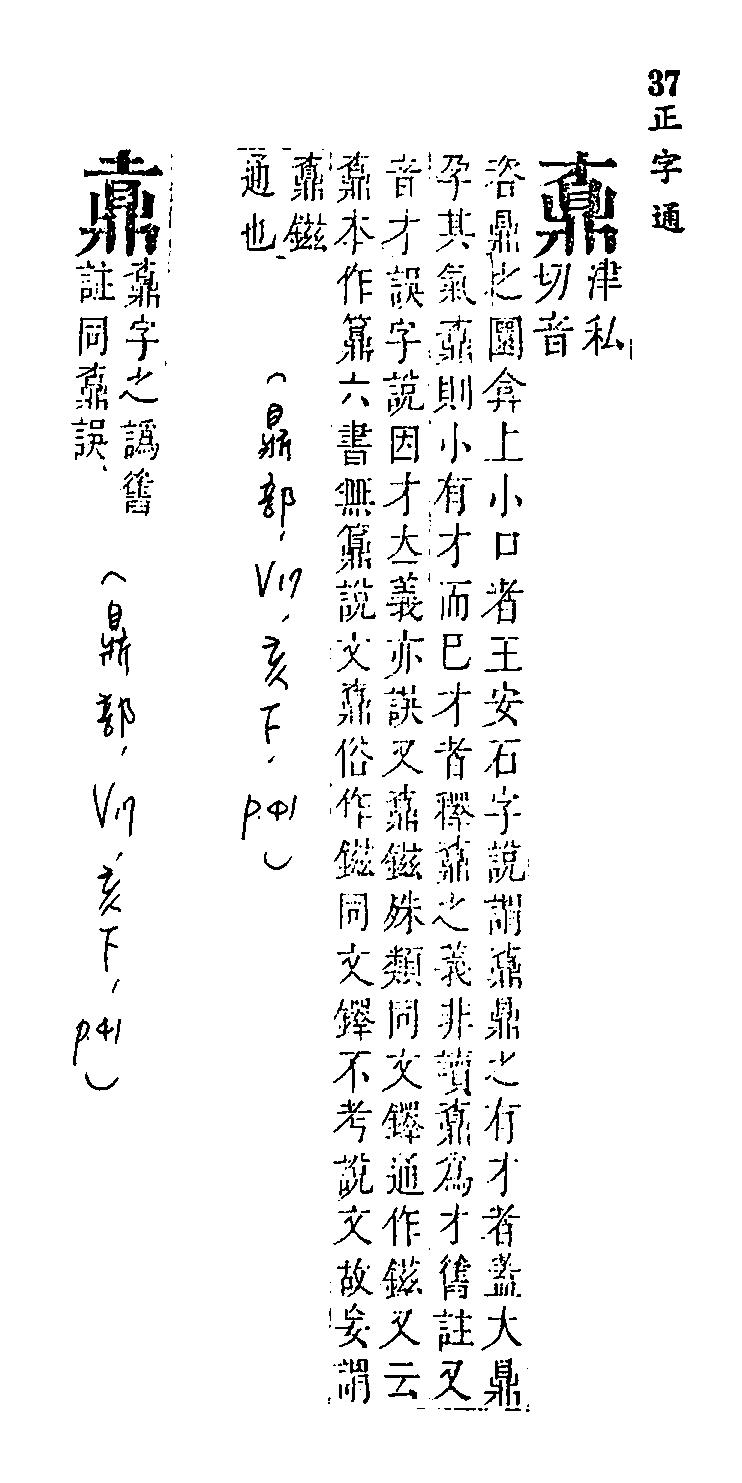 37 正字通
鼒
津私
切音
咨鼎之圜弇上小口者王安石字說謂鼒鼎之有才者葢大鼎
孕其氣鼒則小有才而巳才者釋鼒之義非讀鼒為才舊註又
音才誤字說因才立義亦誤又鼒鎡殊類同文鐸通作鎡又云
鼒本作六書無說文鼒俗作鎡同文鐸不考說文故妄謂
鼒鎡
通也
(鼎部, V17, 亥下, p.41)
鼒字之譌舊
註同鼒誤、
(鼎部, V17, 亥下, p.41)